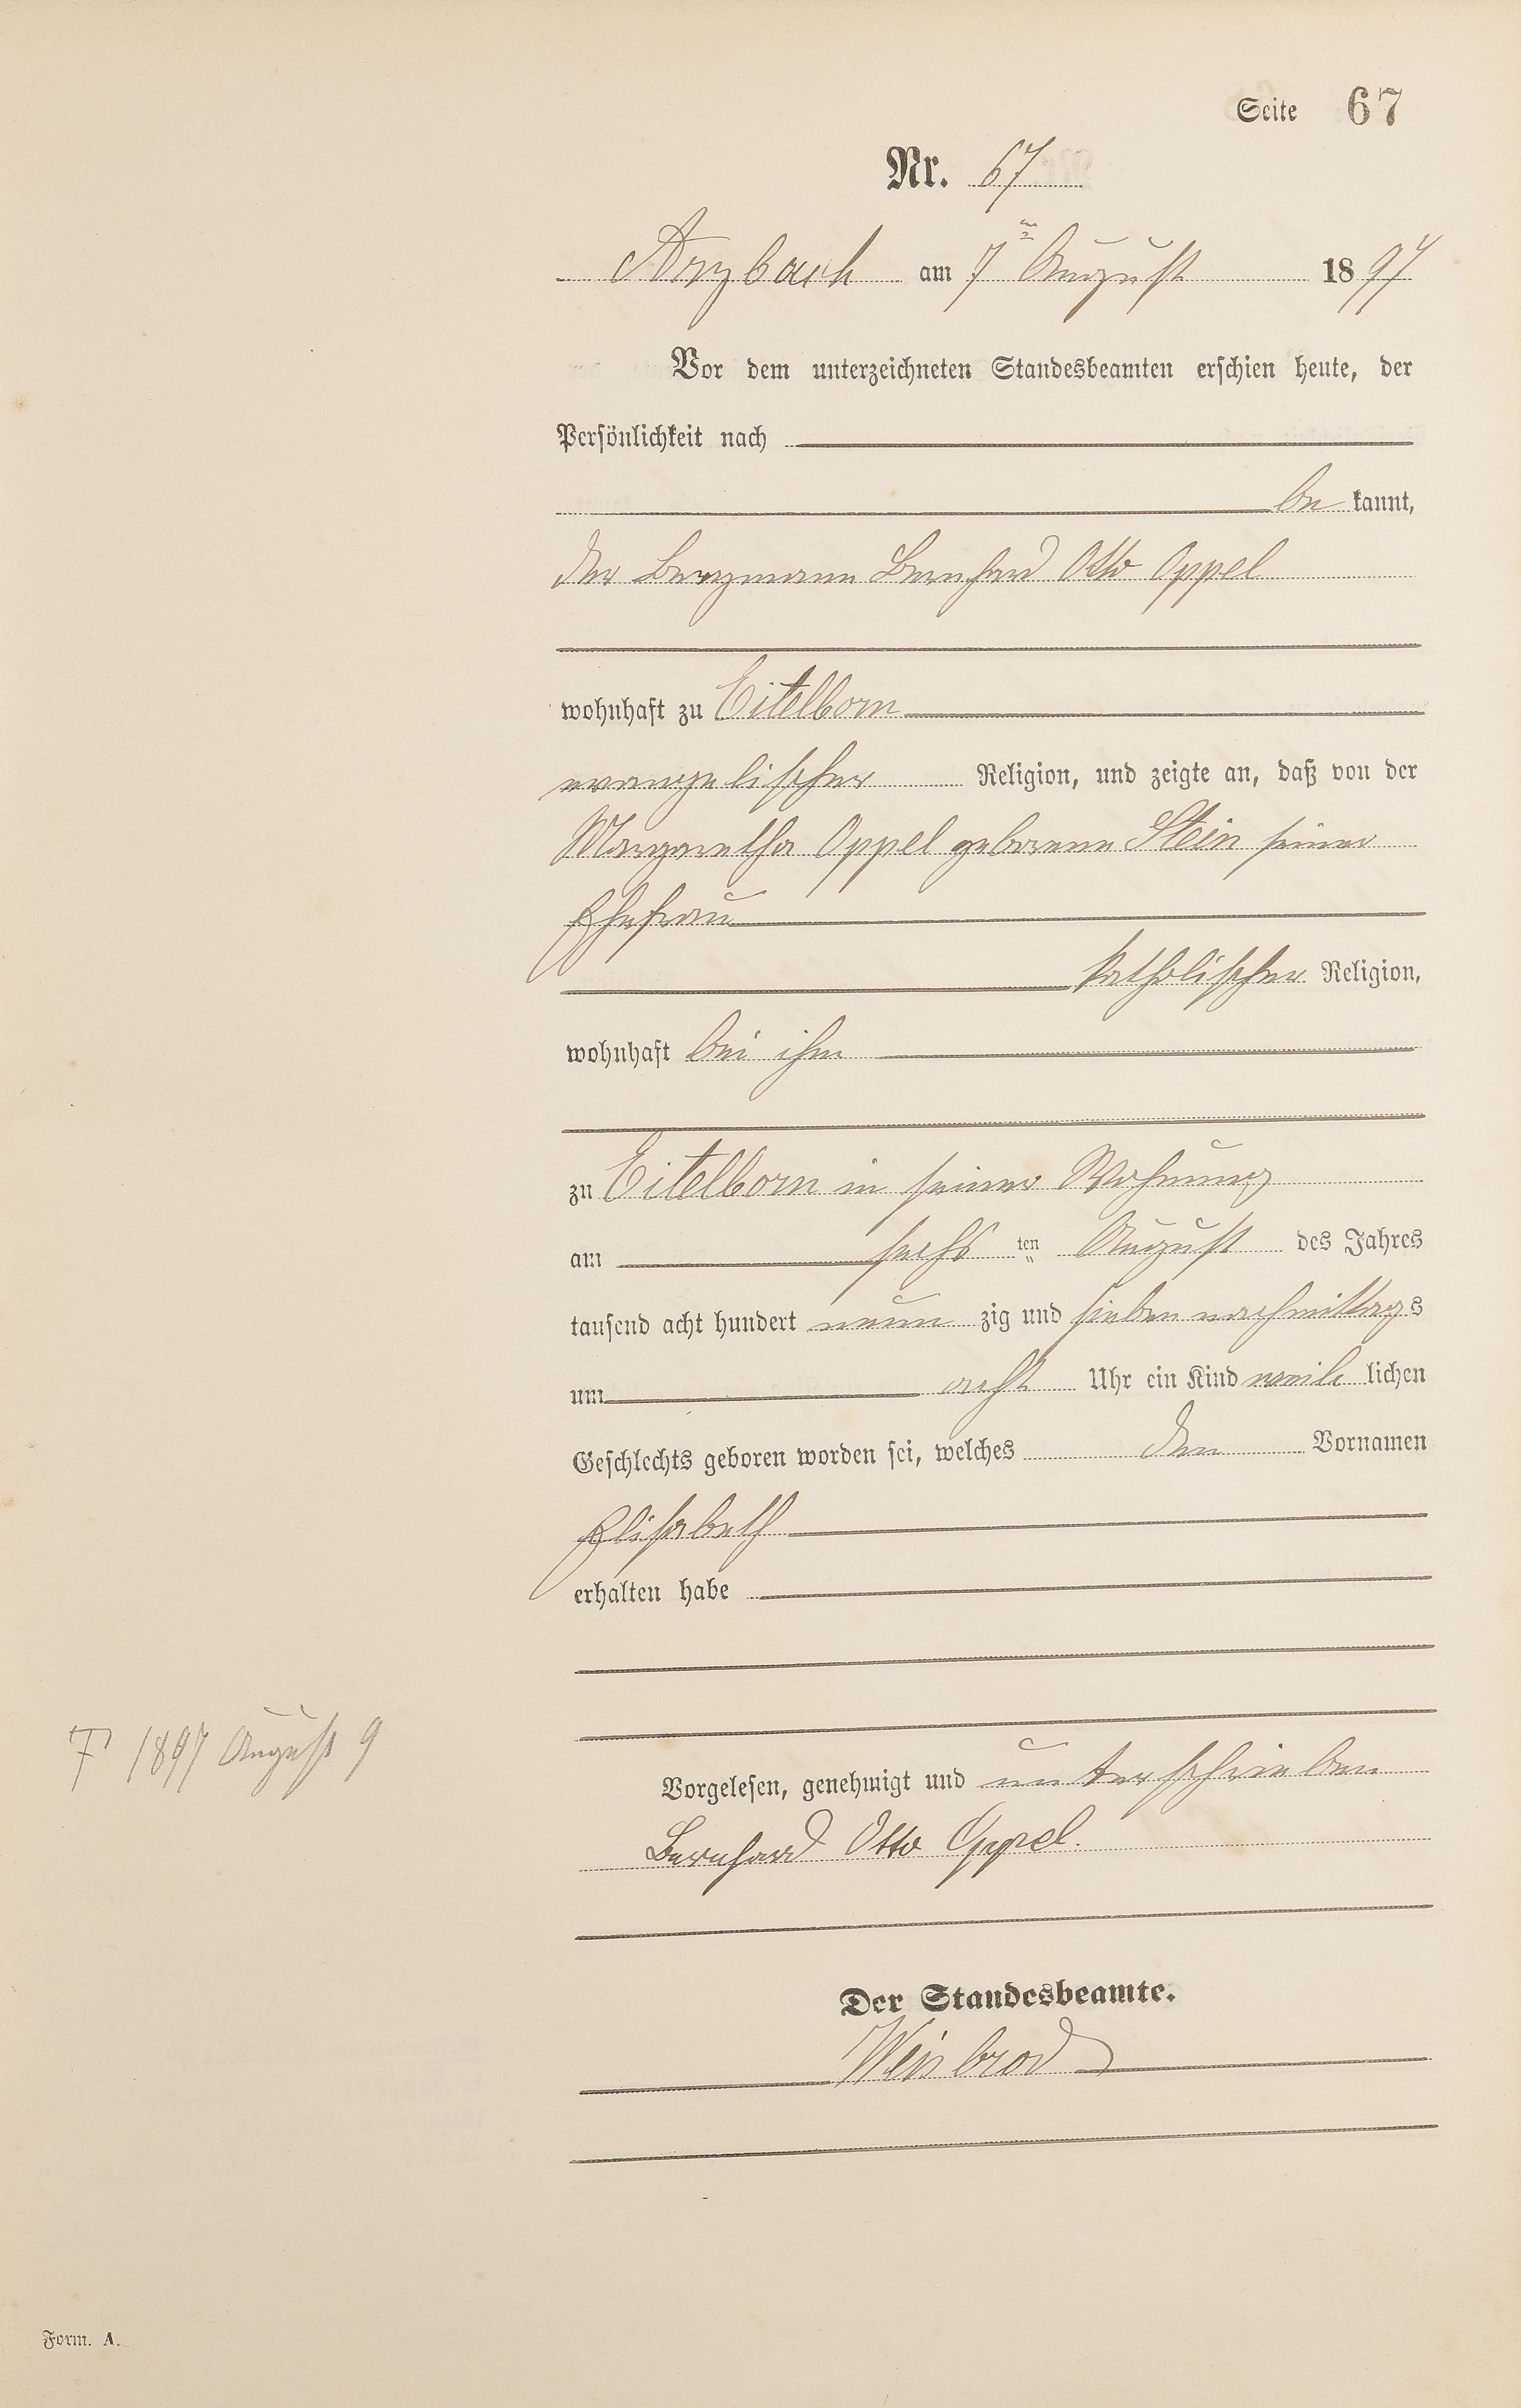 Seite 67
Nr. 67
Arzbach am 7ten August 1897
Vor dem unterzeichneten Standesbeamten erschien heute, der
Persönlichkeit nach
be kannt,
der Bergmann Bernhard Otto Oppel
wohnhaft zu Eitelborn
evangelischer Religion, und zeigte an, daß von der
Margaretha Oppel geborene Stein seiner
Ehefrau
katholischer Religion,
wohnhaft bei ihm
zu Eitelborn in seiner Wohnung
am sechs ten August des Jahres
tausend acht hundert neun zig und sieben nachmittags
um acht Uhr ein Kind weib lichen
Geschlechts geboren worden sei, welches den Vornamen
Elisabeth
erhalten habe
† 1897 August 9
Vorgelesen, genehmigt und unterschrieben
Bernhard Otto Oppel.
Der Standesbeamte.
Weisbrod
Form. A.